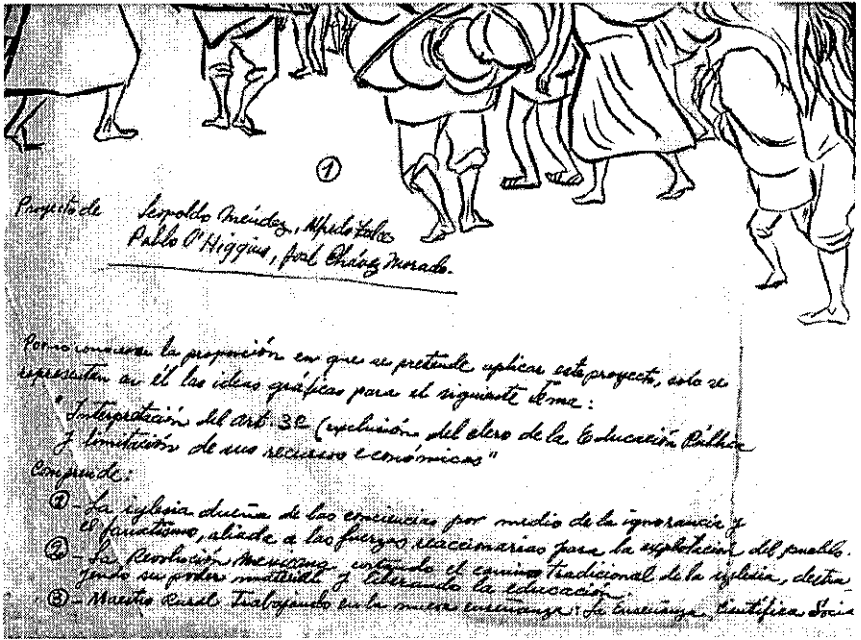 ①
Proyecto de Leopoldo Méndez, Alfredo Zalce
Pablo O'Higgins, José Chávez Morado.
la proporción en que se pretende aplicar este proyecto, solo se
representan en él las ideas gráficas para el siguiente tema:
"Interpretación del art. 3º (exclusión del clero de la Educación Pública
y limitación de sus recursos económicos"
Comprende:
① - La iglesia dueña de las conciencias por medio de la ignorancia y
el fanatismo, aliada a las fuerzas reaccionarias para la explotación del pueblo.
② - La Revolución Mexicana cortando el camino tradicional de la iglesia, destru
yendo su poder material y liberando la educación.
③ - Maestro Rural Trabajando en la nueva enseñanza: La enseñanza Científica Socia